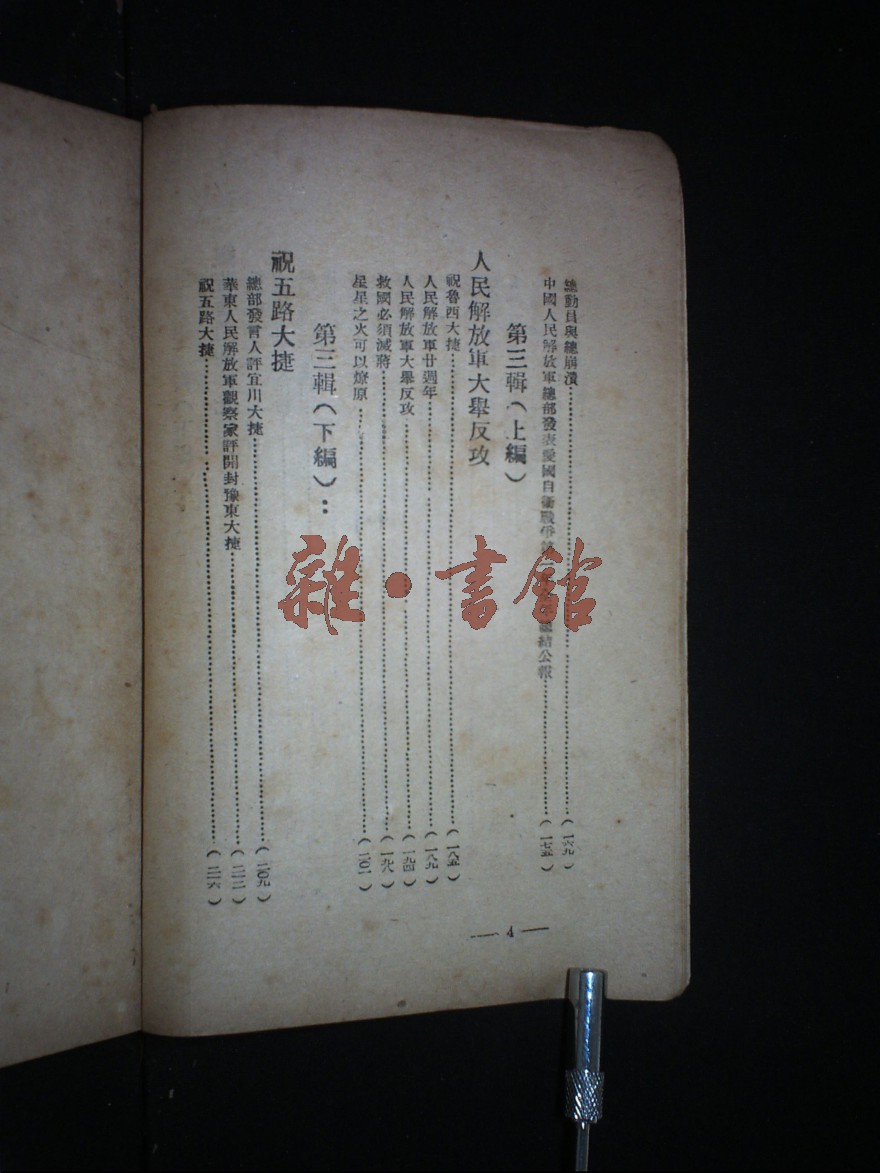 總動員與總崩潰……（一六九）
中國人民解放軍總部發表愛國自衛戰爭第 總結公報……（一七五）
第三輯（上編）
人民解放軍大舉反攻
祝魯西大捷……（一八五）
人民解放軍廿週年……（一八九）
人民解放軍大舉反攻……（一九四）
救國必須滅蔣……（一九八）
星星之火可以燎原……（二〇一）
第三輯（下編）：
祝五路大捷
總部發言人評宜川大捷……（二〇九）
華東人民解放軍觀察家評開封豫東大捷……（二一二）
祝五路大捷……（二一六）
— 4 —
雜·書館